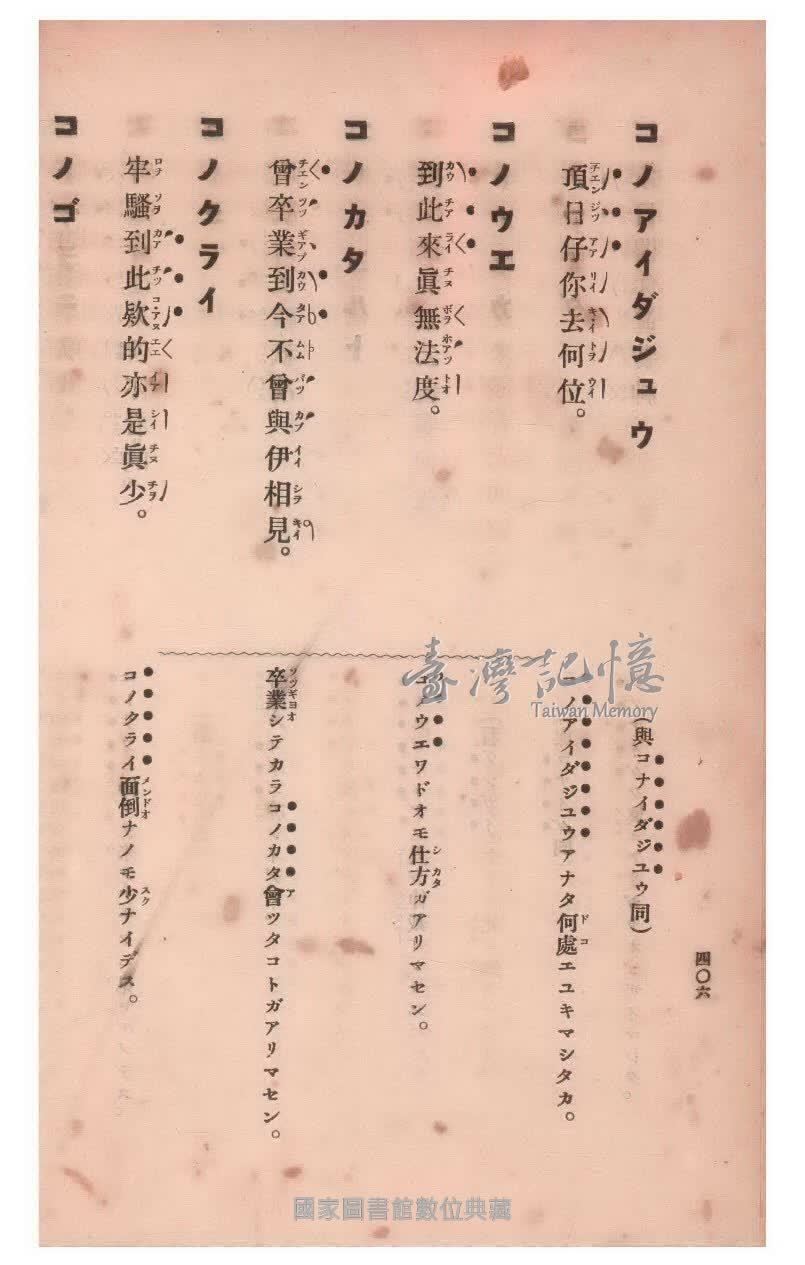 四〇六
コノアイダジュウ
(與コナイダジユウ同)
頂日仔你去何位。
コノアイダジユウアナタ何處エユキマシタカ。
コノウエ
到此來眞無法度。
コノウエワドオモ仕方ガアリマセン。
コノカタ
曾卒業到今不曾與伊相見。
卒業シテカラコノカタ會ツタコトガアリマセン。
コノクライ
牢騷到此欵的亦是眞少。
コノクライ面倒ナノモ少ナイデス。
コノゴ
臺灣記憶
Taiwan Memory
國家圖書館數位典藏